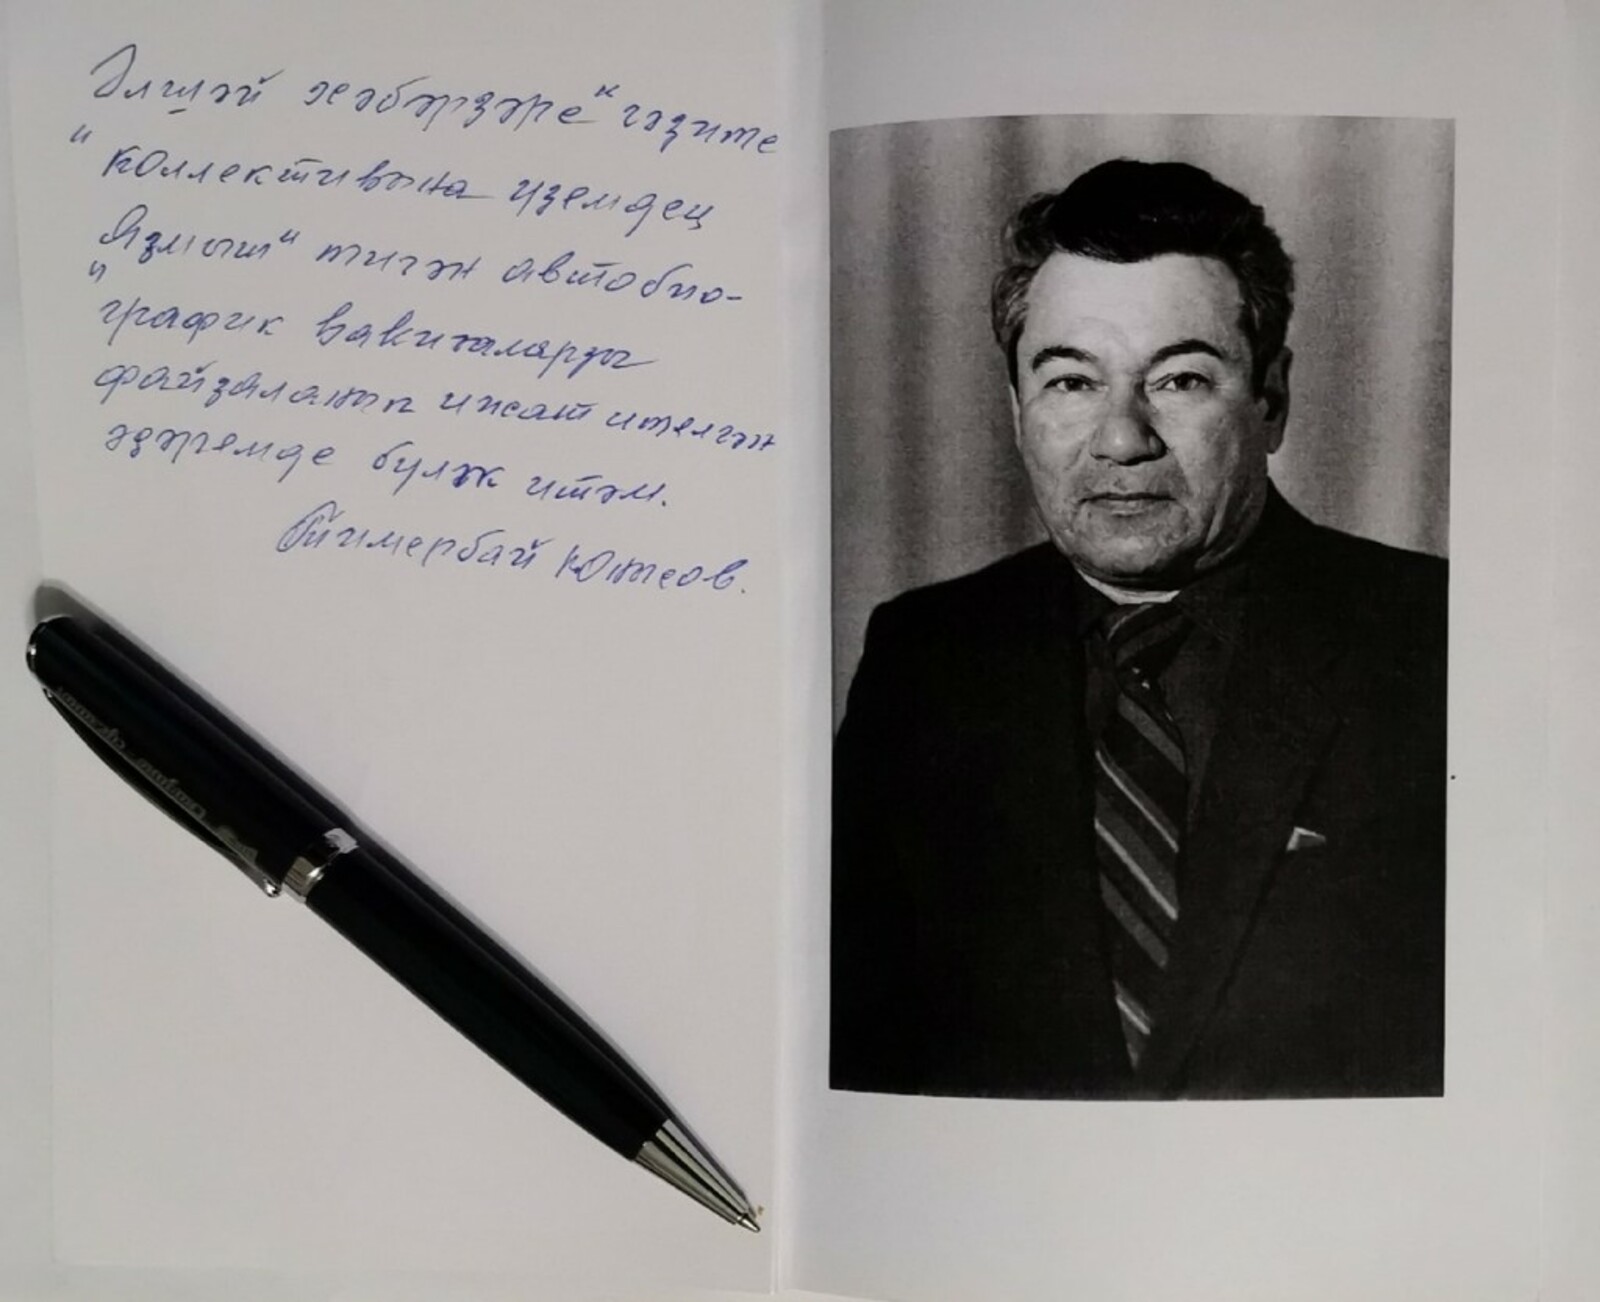 "Әлшәй хәбәрҙәре" гәзите
коллективына үҙемдең
"Яҙмыш" тигән автобио-
график ваҡиғаларҙы
файҙаланып ижат ителгән
әҫәремде бүләк итәм.
Тимербай Юнысов.